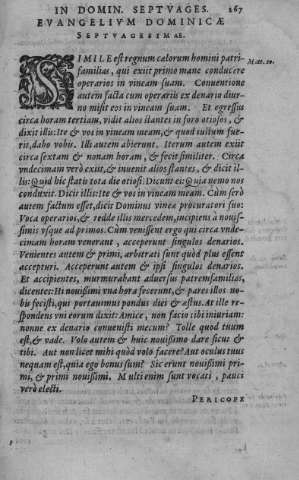 IN DOMIN. SEPTVAGES. 267
EVANGELIVM DOMINICÆ
SEPTVAGESIMAE.
SIMILE est regnum cælorum homini patri- Mat. 20.
familias, qui exiit primo mane conducere
operarios in vineam suam. Conventione
autem facta cum operariis ex denario diur-
no misit eos in vineam suam. Et egressus
circa horam tertiam, vidit alios stantes in foro otiosos, &
dixit illis: Ite & vos in vineam meam, & quod iustum fue-
rit, dabo vobis. Illi autem abierunt. Iterum autem exiit
circa sextam & nonam horam, & fecit similiter. Circa
vndecimam verò exiit, & inuenit alios stantes, & dicit il-
lis: Quid hîc statis tota die otiosi: Dicunt ei: Quia nemo nos
conduxit. Dicit illis: Ite & vos in vineam meam. Cum serò
autem factum esset, dicit Dominus vineæ procuratori suo:
Voca operarios, & redde illis mercedem, incipiens à nouis-
simis vsque ad primos. Cùm venissent ergo qui circa vnde-
cimam horam venerant, acceperunt singulos denarios.
Venientes autem & primi, arbitrati sunt quòd plus essent
accepturi. Acceperunt autem & ipsi singulos denarios.
Et accipientes, murmurabant aduersus patremfamilias,
dicentes: Hi nouissimi vna hora fecerunt, & pares illos no-
bis fecisti, qui portauimus pondus diei & æstus. At ille re-
spondens vni eorum dixit: Amice, non facio tibi iniuriam:
nonne ex denario conuenisti mecum? Tolle quod tuum
est, & vade. Volo autem & huic nouissimo dare sicut &
tibi. Aut non licet mihi quòd volo facere? Aut oculus tuus
nequam est, quia ego bonus sum? Sic erunt nouissimi pri-
mi, & primi nouissimi. Multi enim sunt vocati, pauci
verò electi.
PERICOPE